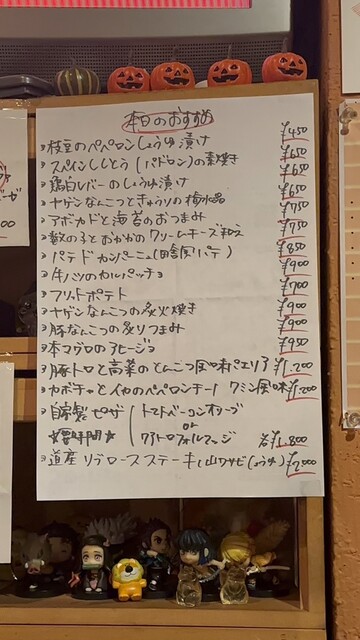 本日のおすすめ
枝豆のペペロンしょうゆ漬け ¥450
スペインししとう(パドロン)の素焼き ¥650
鶏白レバーのしょうゆ漬け ¥650
ヤゲンなんこつときゅうりの梅水晶 ¥650
アボカドと海苔のおつまみ ¥750
数の子とおかかのクリームチーズ和え ¥750
パテドカンパーニュ(田舎風パテ) ¥850
牛ハツのカルパッチョ ¥900
フリットポテト ¥700
ヤゲンなんこつの炙火焼き ¥900
豚なんこつの炙りつまみ ¥900
本マグロのアヒージョ ¥950
豚トロと高菜のとんこつ風味パエリア ¥1,200
カボチャとイカのペペロンチーノ クミン風味 ¥1,200
自家製ピザ トマトベーコンオリーブ
or
★要時間★ クアトロフォルマッジ 各¥1,800
道産リブロースステーキ(山ワサビしょうゆ) ¥2,000